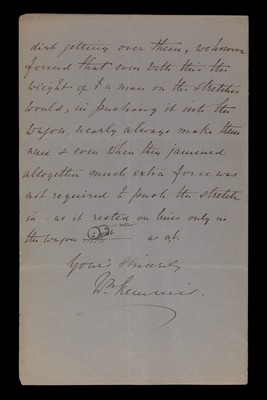 dirt getting over them, we however
found that even with this the
weight of a man on the stretcher
would, in pushing it into the
wagon, nearly always make them
run & even when they jammed
altogether much extra force was
not required to push the stretcher
in as it rested on lines only in
the wagon as at.
Yours Sincerely
Wm